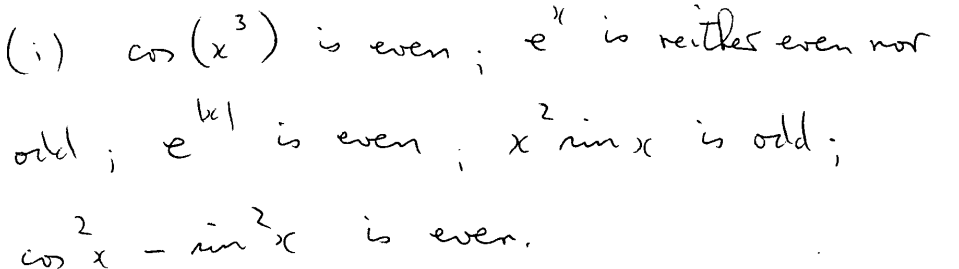 (i) cos(x³) is even; eˣ is neither even nor
odd; e^|x| is even; x² sin x is odd;
cos²x – sin²x is even.